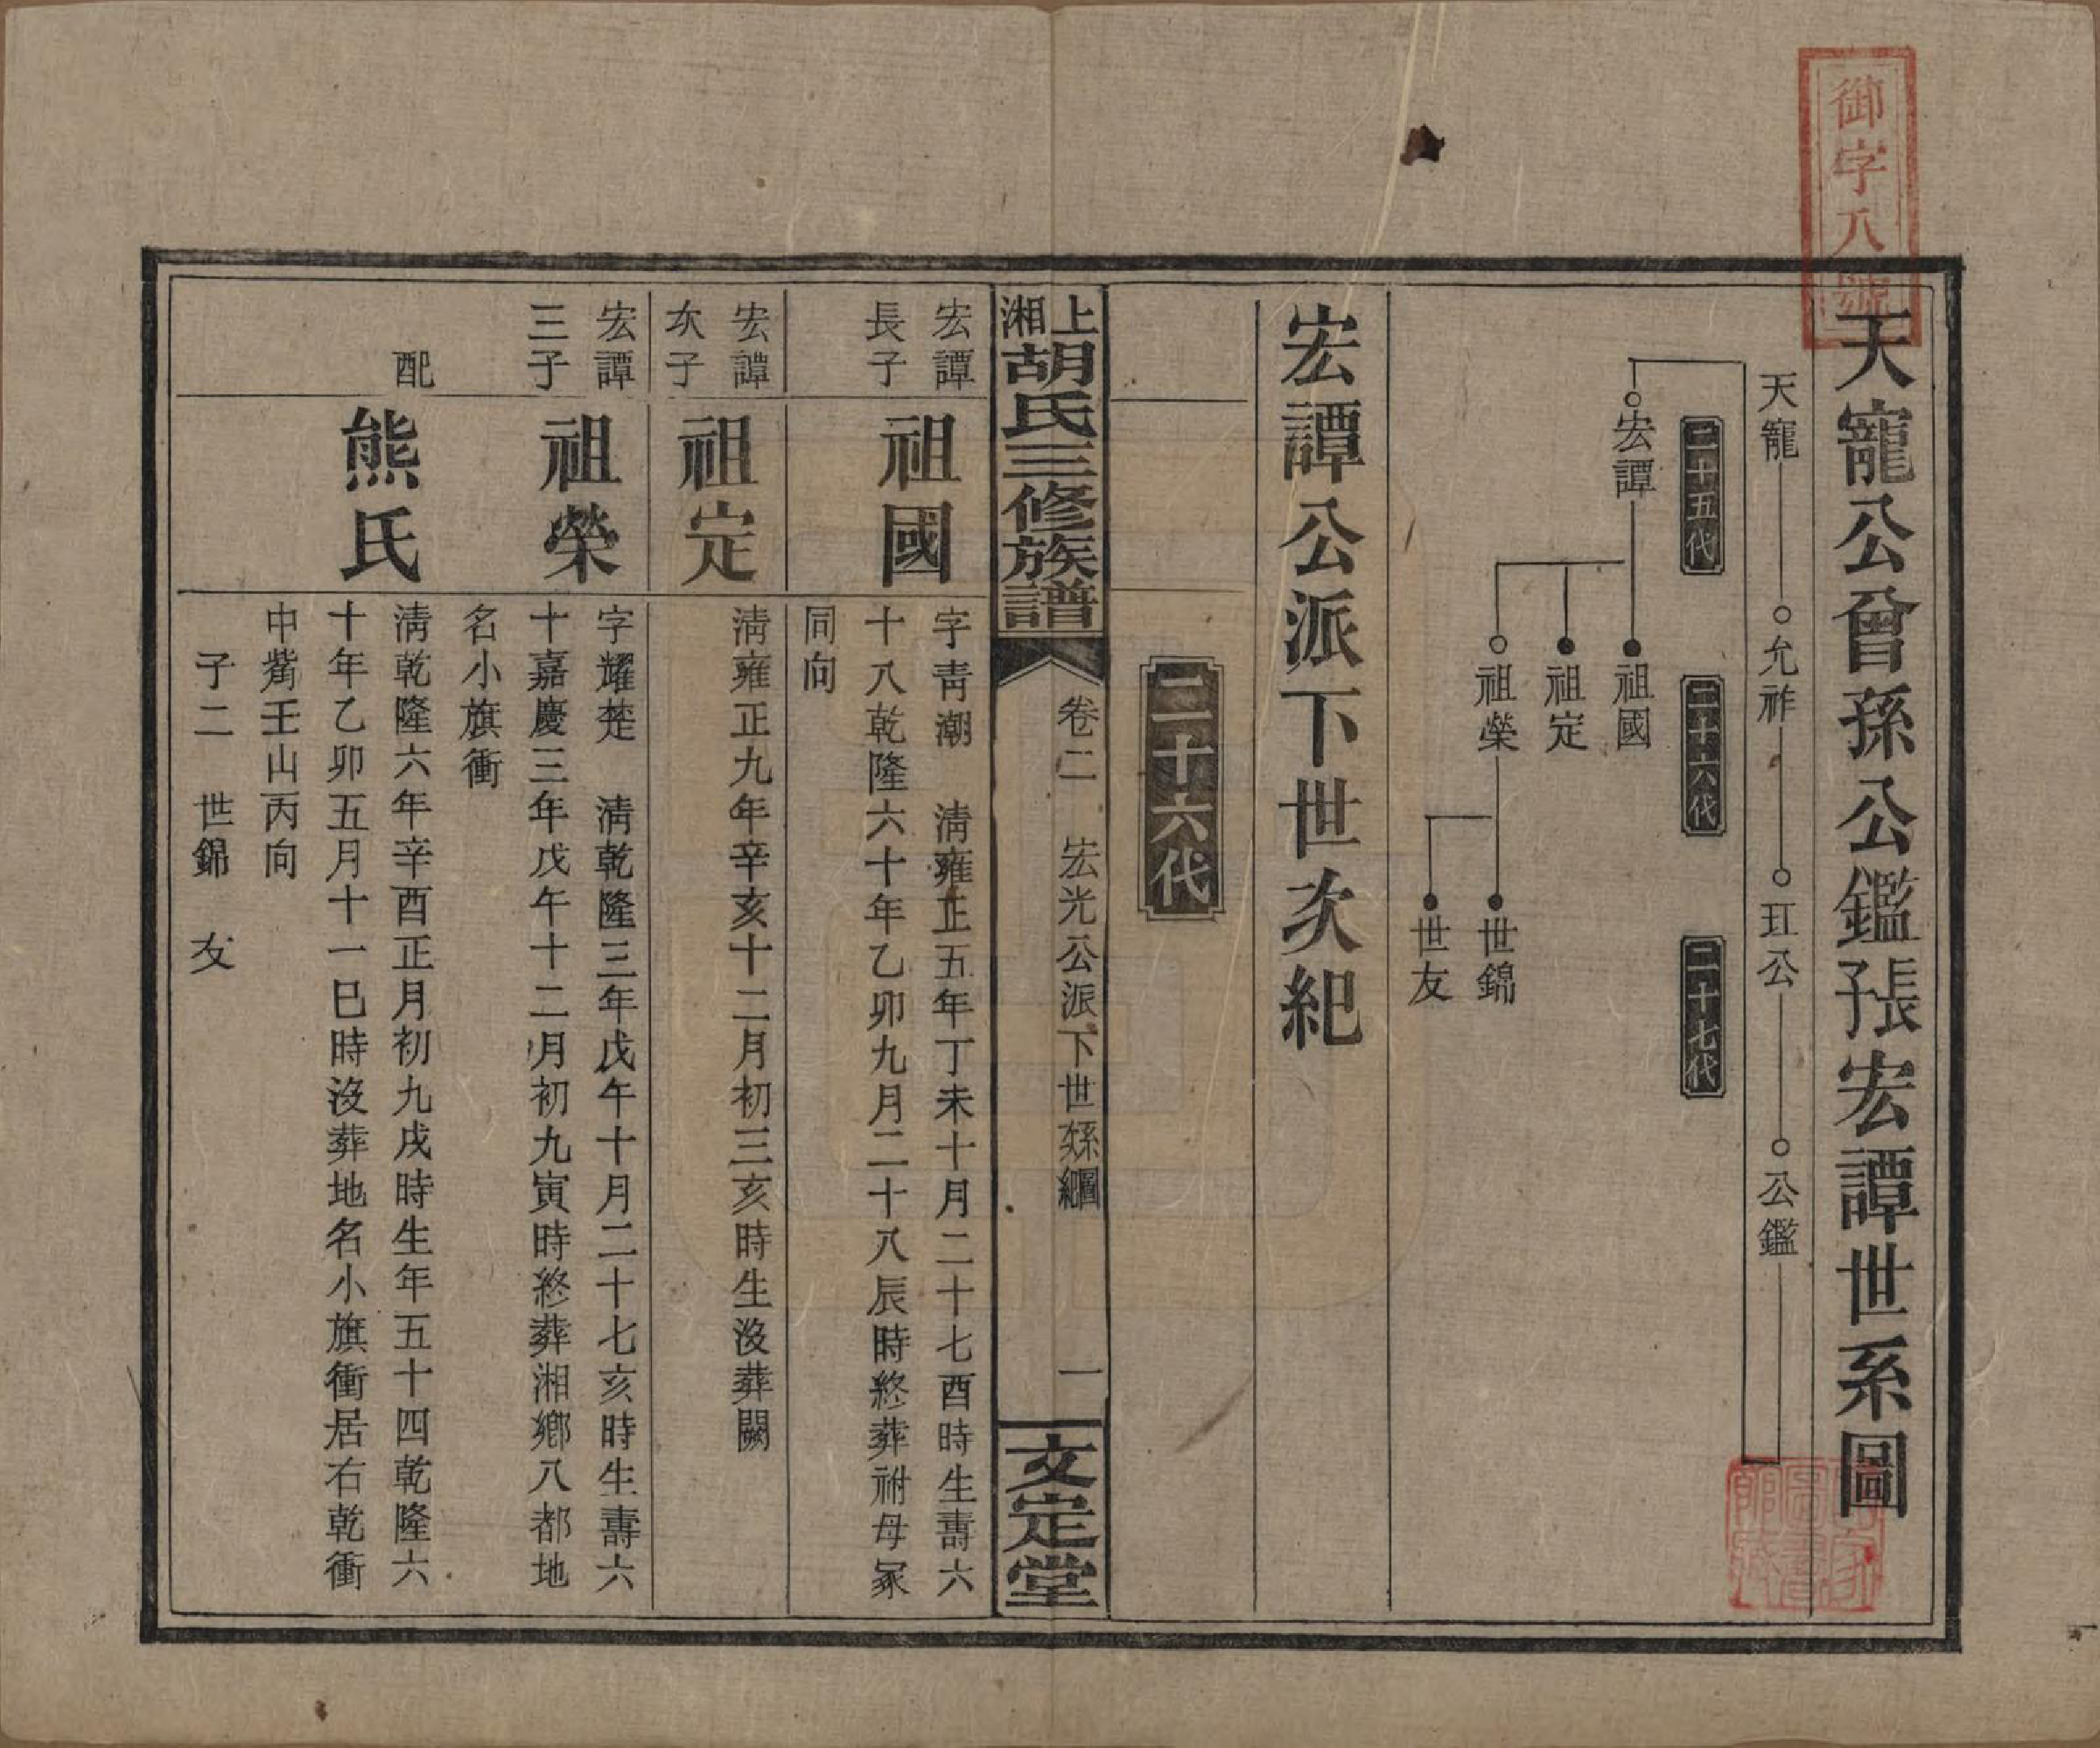 御字八號
天寵公曾孫公鑑張宏譚世系圖
天寵 允祚 玒公 公鑑
二十五代 二十六代 二十七代
宏譚 祖國
祖定
祖榮 世錦
世友
宏譚公派下世次紀
二十六代
上湘胡氏三修族譜 卷二 宏光公派下世系圖次紀 一 文定堂
宏譚長子 祖國
字青潮 淸雍正五年丁未十月二十七酉時生壽六
十八乾隆六十年乙卯九月二十八辰時終葬祔母冢
同向
宏譚次子 祖定
淸雍正九年辛亥十二月初三亥時生沒葬闕
宏譚三子 祖榮
字耀楚 淸乾隆三年戊午十月二十七亥時生壽六
十嘉慶三年戊午十二月初九寅時終葬湘鄉八都地
名小旗衝
配 熊氏
淸乾隆六年辛酉正月初九戌時生年五十四乾隆六
十年乙卯五月十一巳時沒葬地名小旗衝居右乾衝
中觜壬山丙向
子二 世錦 友